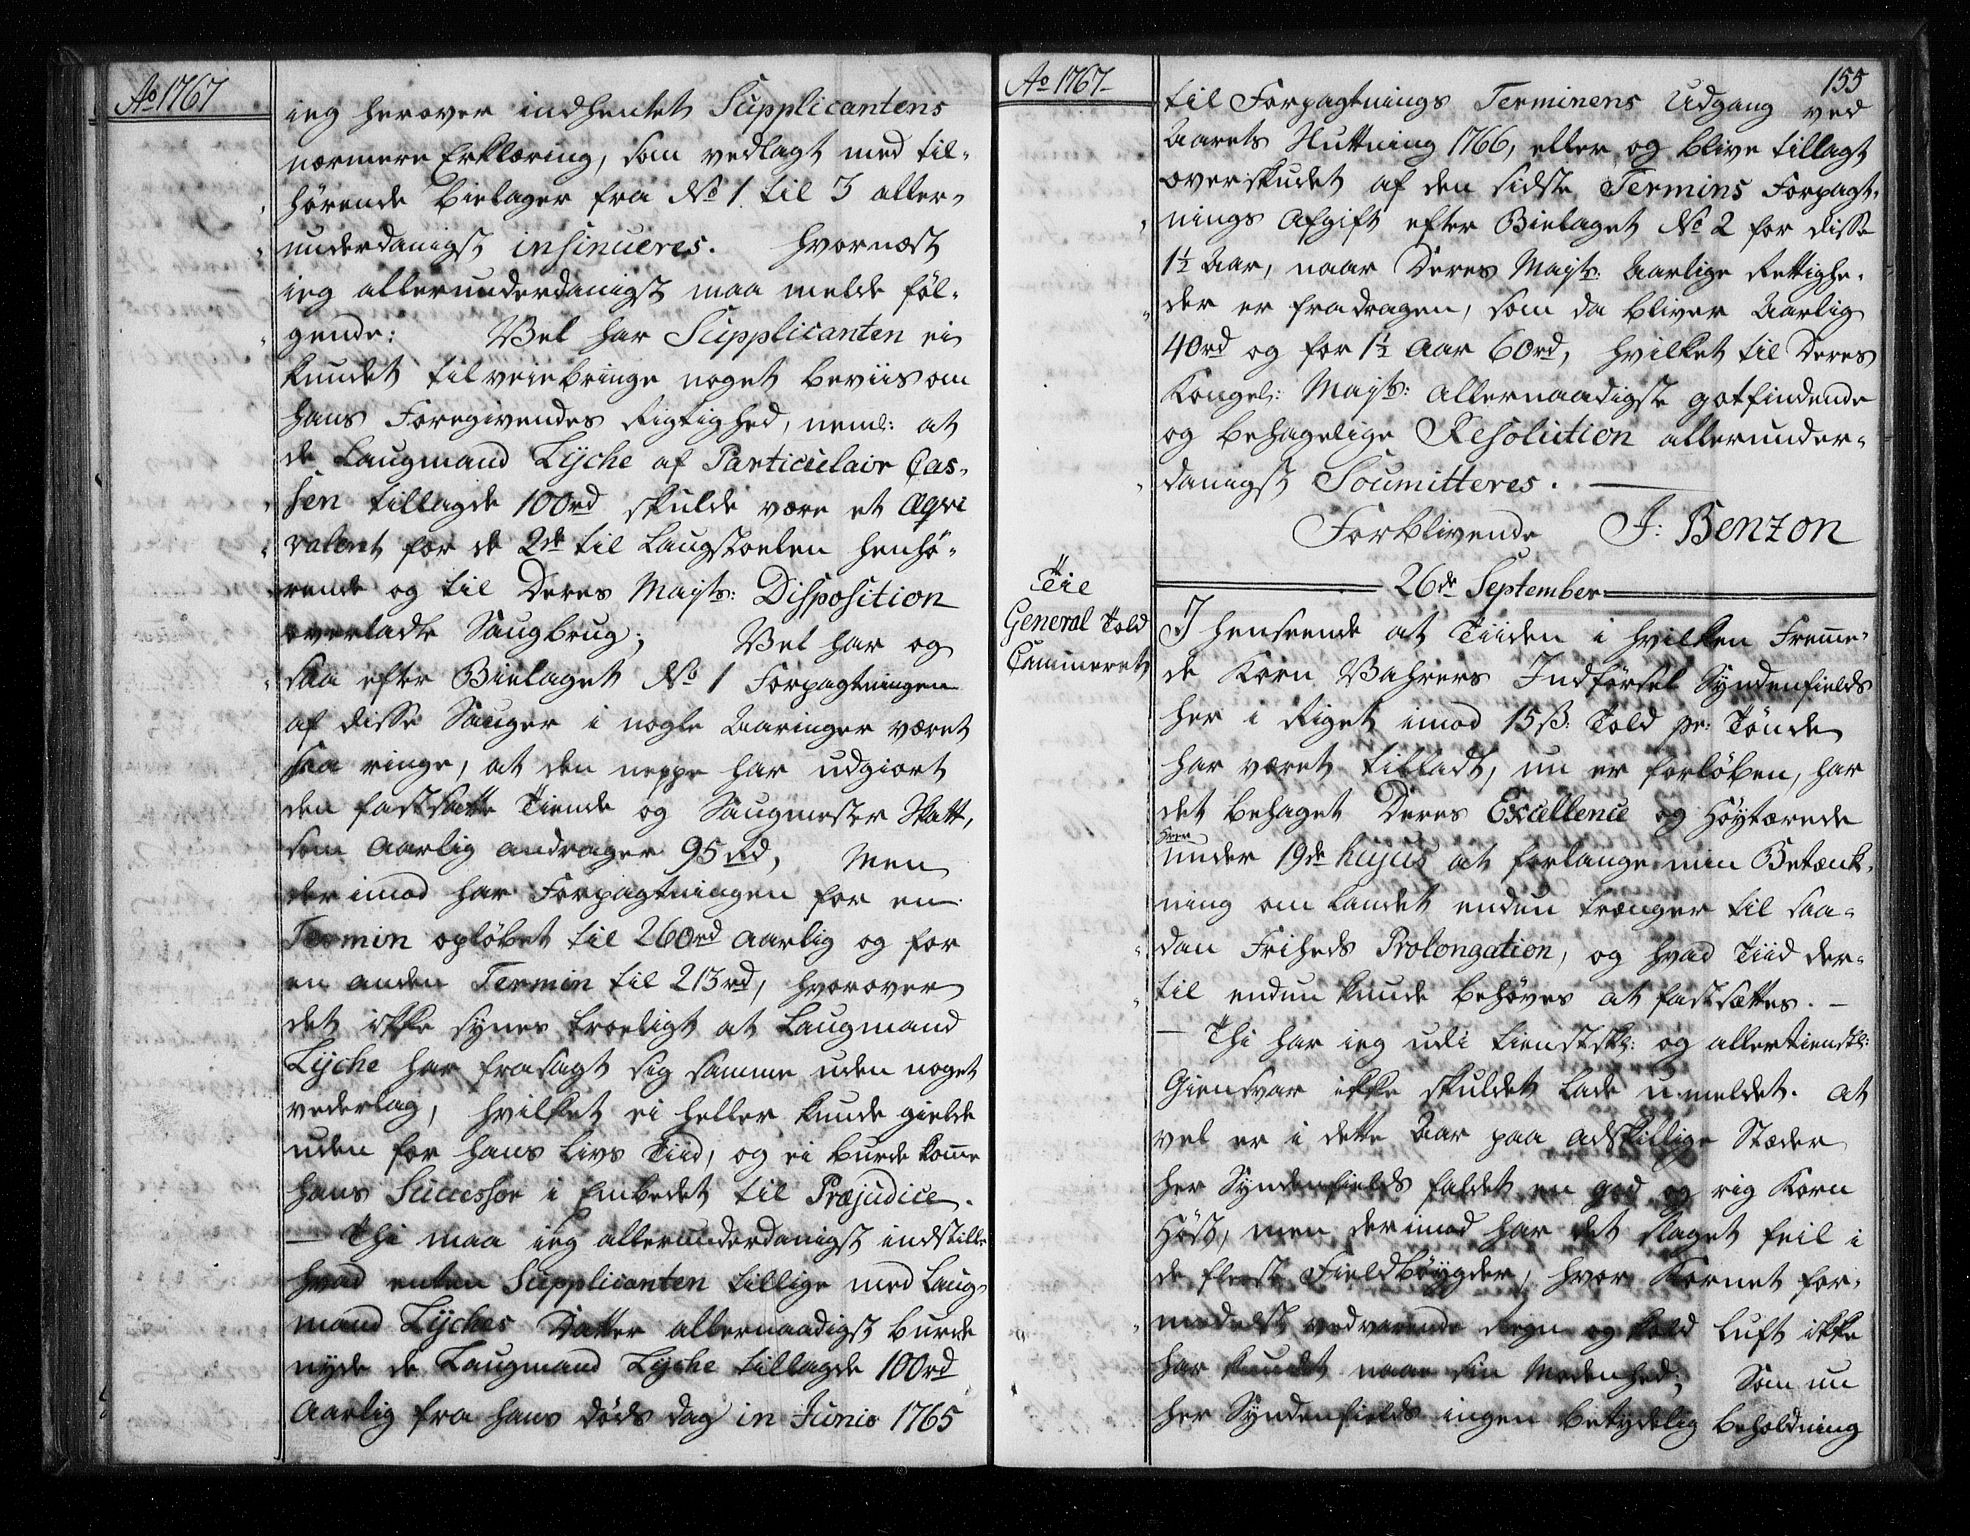 Ao 1767
ieg herover indhentet Supplicantens
nærmere Erklæring, som vedlagt med til-
hørende Bielager fra No 1 til 3 aller-
underdanigst insinueres. Hvornæst
ieg allerunderdanigst maa melde föl-
gende: Vel har Supplicanten ei
kundet tilveiebringe noget beviis om
hans Foregivendes Rigtighed, neml: at
de Laugmand Lyche af Particulair Cas-
sen tillagde 100rd skulde være et Æqvi
valent for de 2de til Laugstoelen henhö-
rende og til Deres Mayts: Disposition
overladte Saugbrug; Vel har og
saa efter Bielaget No 1 Forpagtningen
af disse Sauger i nogle Aaringer været
saa ringe, at den neppe har udgiort
den fastsatte Tiende og Saugmester Skatt,
som Aarlig andrager 95 rd, Men
derimod har Forpagtningen for en
Termin oplöbet til 260rd Aarlig og for
en anden Termin til 213rd, hvorover
det ikke synes troeligt at Laugmand
Lyche har frasagt sig samme uden noget
vederlag, hvilket ei heller kunde gielde
uden for hans Livs Tiid, og ei burde kome
hans Successor i Embedet til Præjudice.
— Thi maa ieg allerunderdanigst indstille
hvad enten Supplicanten tillige med Laug-
mand Lyches Datter allernaadigst burde
nyde de Laugmand Lyche tillagde 100rd
Aarlig fra hans döds dag in Junio 1765
Ao 1767
155
til Forpagtnings Terminens Udgang ved
Aarets Slutning 1766, eller og blive tillagt
overskudet af den sidste Termins Forpagt-
nings Afgift efter Bielaget No 2 for disse
1½ Aar, naar Deres Mayts: Aarlige Rettighe-
der er fradragen, som da bliver Aarlig
40rd og for 1½ Aar 60rd, hvilket til Deres
Kongel: Mayts: allernaadigste gotfindende
og behagelige Resolution allerunder-
danigst Soumitteres.
Forblivende J: Benzon
26de September
Til
General Told
Cammeret
I henseende at Tiiden i hvilken Frem̄e-
de Korn Vahrers Indförsel Syndenfields
her i Riget imod 15ß: Told pr: Tönde
har været tilladt, nu er forlöben, har
det behaget Deres Excellence og Höytærede
Herr
under 19de hujus at forlange min Betænk-
ning om Landet endnu trænger til saa-
dan Friheds Prolongation, og hvad Tiid der-
til endnu kunde behöves at fastsættes. —
— Thi har ieg udi tienstskl: og allertienstl:
Giensvar ikke skuldet lade umeldet. At
vel er i dette Aar paa adskillige Stæder
her Syndenfields faldet en god og rig Korn
Höst, men derimod har det slaget feil i
de fleeste Fieldböygder, hvor Kornet for-
medelst vedvarende Regn og kold Luft ikke
har kundet naae sin Modenhed; Som nu
her Syndenfields ingen betydelig beholdning